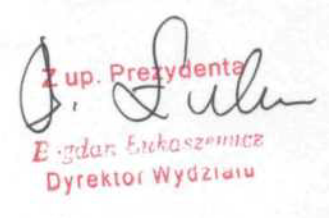 Z up. Prezydenta
Bogdan Łukaszewicz
Dyrektor Wydziału